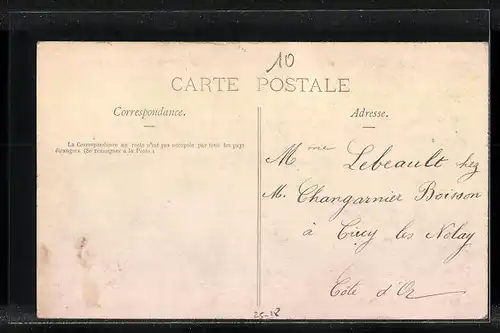 10
CARTE POSTALE
Correspondance.
La Correspondance au recto n'est pas acceptée par tous les pays
étrangers. (Se renseigner à la Poste.)
Adresse.
Mme Lebeault chez
M. Changarnier Boisson
à Cirey les Nolay
Côte d'Or
25-12